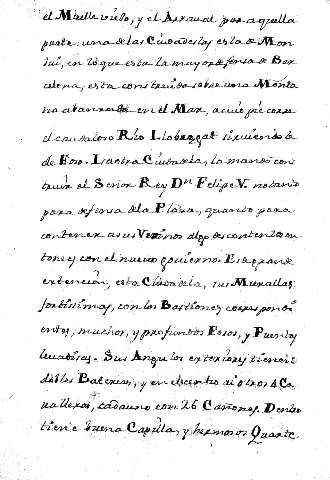 el Muelle viejo, y el Arsenal por aquella
parte: una de las Ciudadelas esta de Mon
jui, en lo que esta la mayor defensa de Bar
celona, esta construida sobre una Monta
na abanzada en el Mar, a cuio pie corre
el caudaloso Rio Llobregat sirviendole
de Foso. La otra Ciudadela, la mandò cons
truir el Señor Rey Dn Felipe V. no tanto
para defensa de la Plaza, quanto para
contener a sus Vezinos algo descontentos en
tonces con el nuevo govierno. Es de grande
extencion, esta Ciudadela, sus Murallas
fortisimas, con los Bastiones correspondi
entes, muchos, y profundos Fosos, y Puentes
levadisas. Sus Angulos exteriores tienen
dobles Baterias, y en el centro ai otros 4 Ca
valleros, cada uno con 26 Cañones. Dentro
tiene buena Capilla, y hermosos Quarte